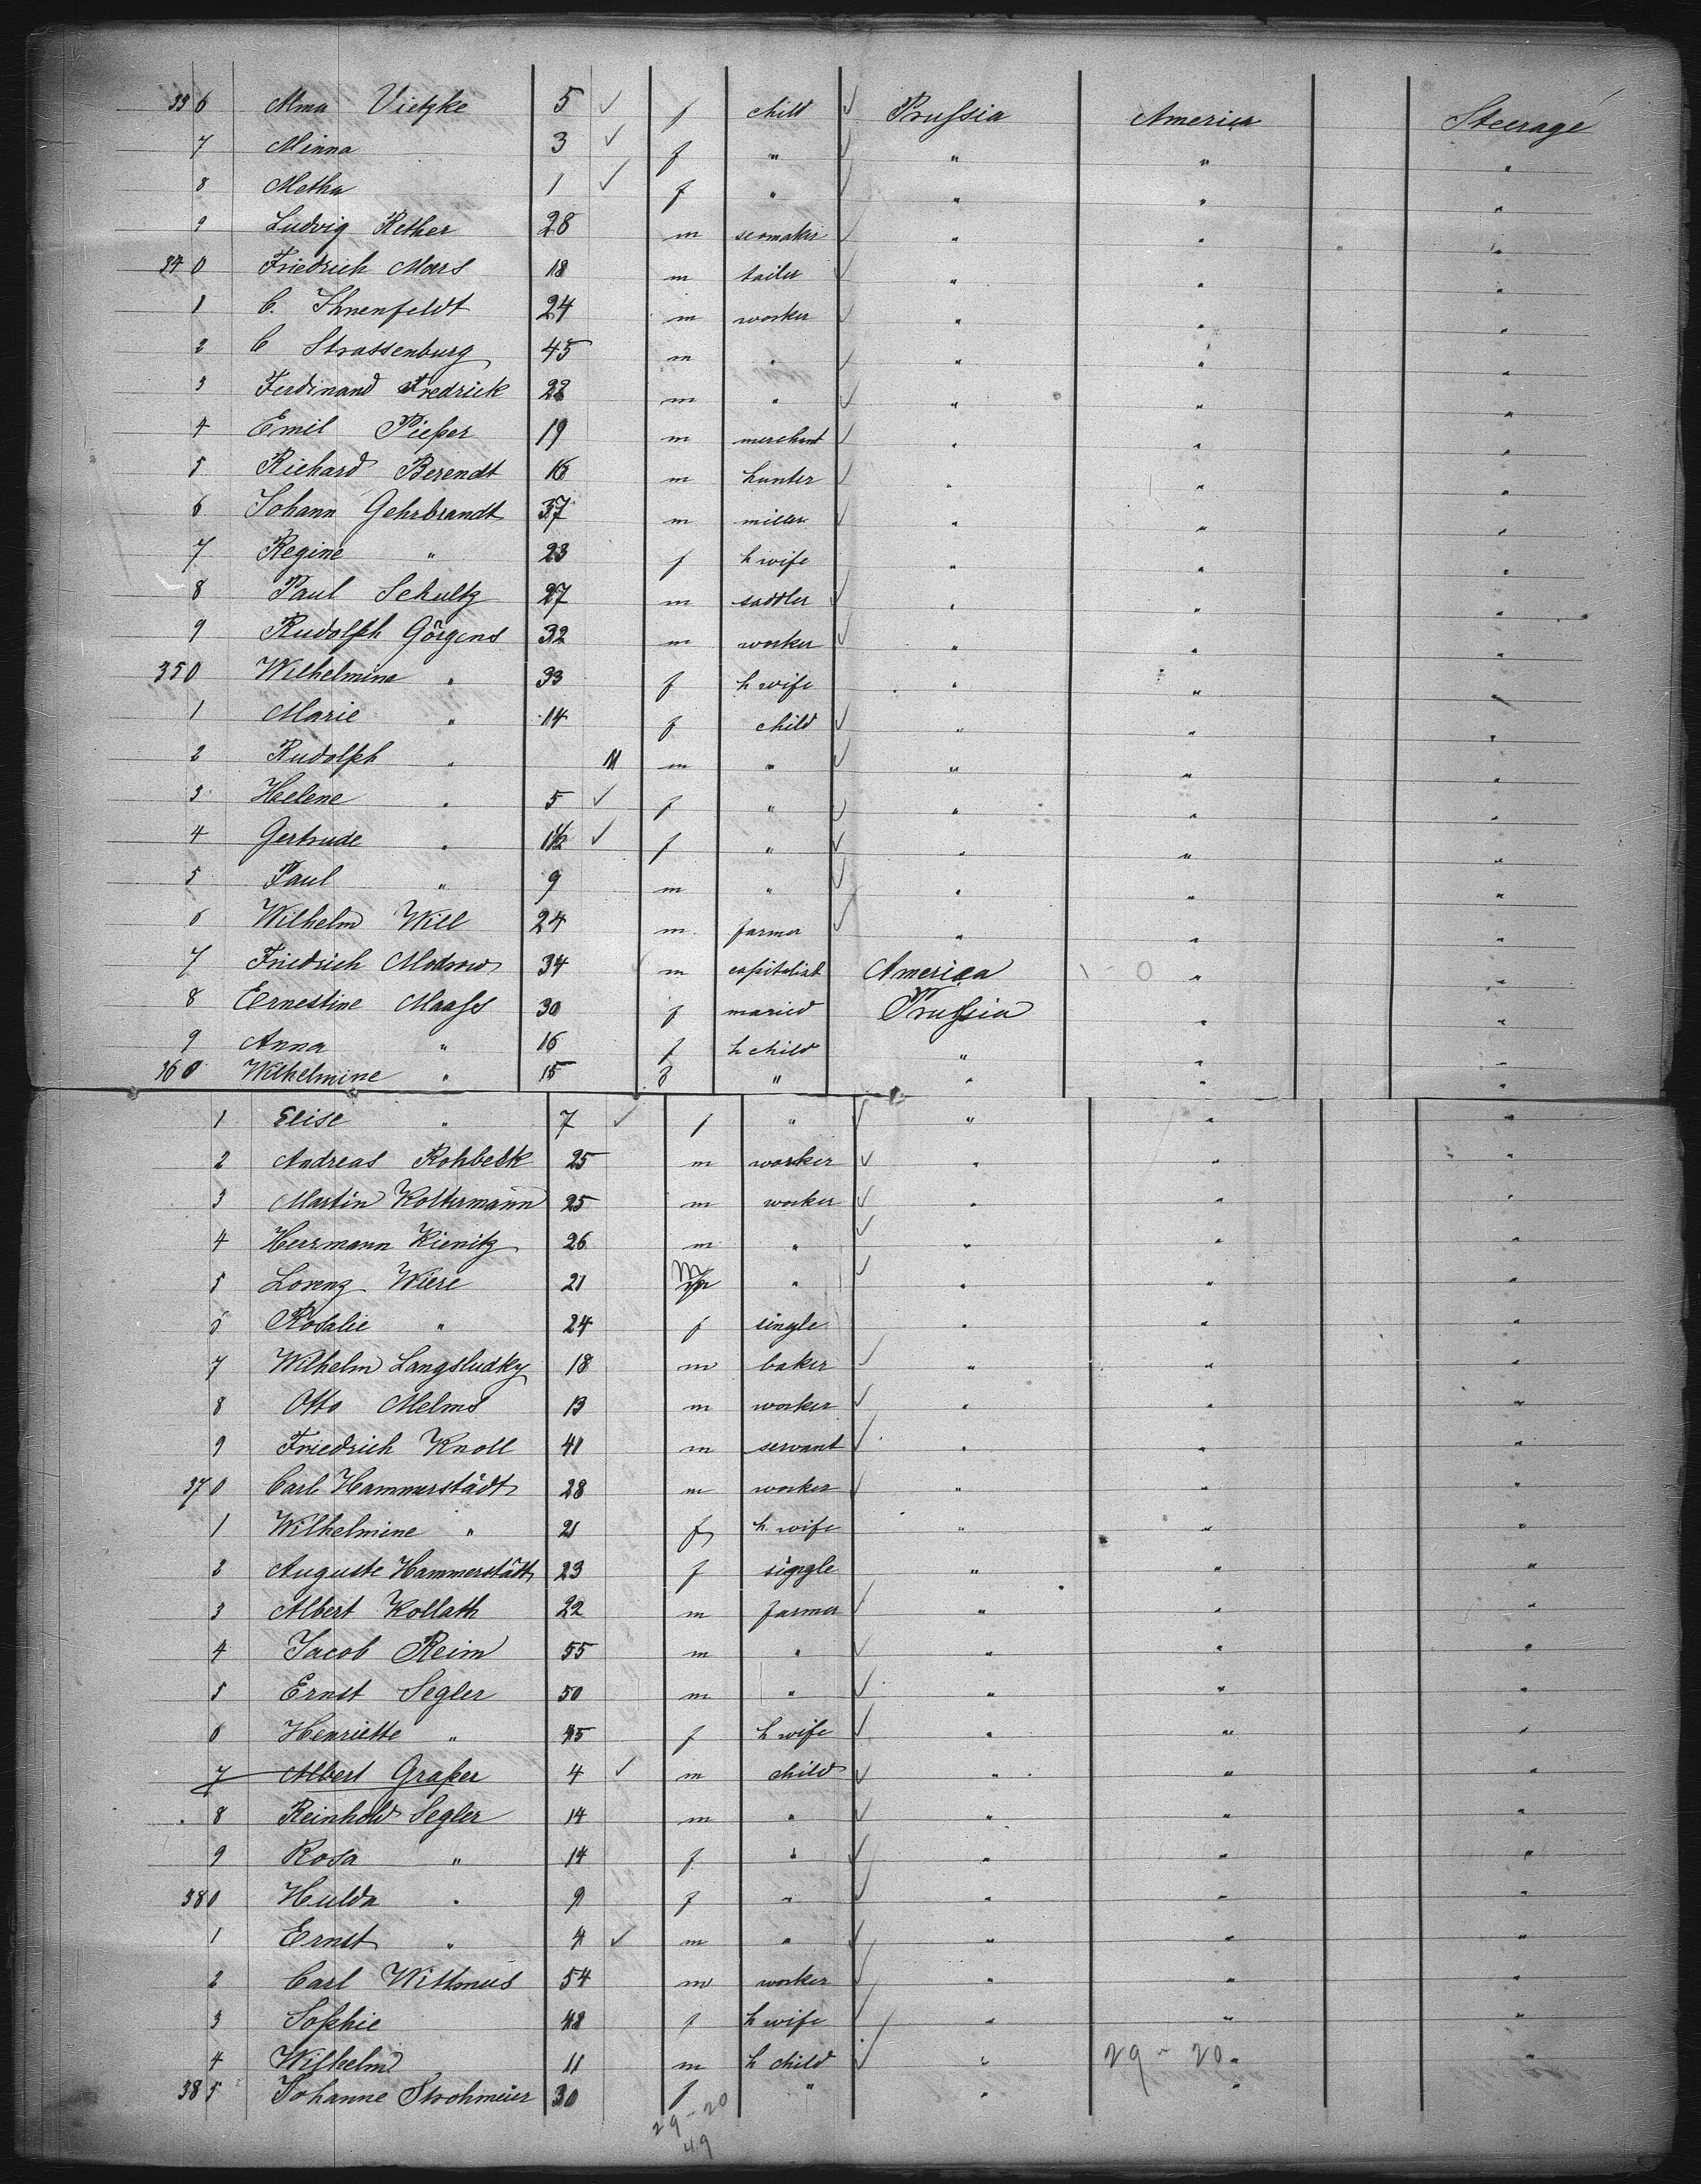 336 Alma Vietzke 5 ✓ f child ✓ Prussia America Steerage
7 Minna 3 ✓ f " ✓ " " "
8 Metha 1 ✓ f " ✓ " " "
9 Ludvig Rether 28 m seomaker ✓ " " "
340 Friedrich Mars 18 m tailer ✓ " " "
1 C. Ihnenfeldt 24 m worker ✓ " " "
2 C Strassenburg 45 m " ✓ " " "
3 Ferdinand Fredrick 22 m " ✓ " " "
4 Emil Pieper 19 m merchant ✓ " " "
5 Richard Berendt 16 m hunter ✓ " " "
6 Johann Gehrbrandt 37 m miller ✓ " " "
7 Regine " 23 f h wife " " "
8 Paul Schultz 27 m saddler ✓ " " "
9 Rudolph Görgens 32 m worker ✓ " " "
350 Wilhelmine " 33 f h wife " " "
1 Marie " 14 f child ✓ " " "
2 Rudolph " 11 m " ✓ " " "
3 Helene " 5 ✓ f " ✓ " " "
4 Gertrude " 1½ ✓ f " ✓ " " "
5 Paul " 9 m " ✓ " " "
6 Wilhelm Will 24 m farmer ✓ " " "
7 Friedrich Modrow 34 m capitalist America 0 " "
8 Ernestine Maass 30 f maried Prussia " "
9 Anna " 16 f h child " " "
360 Wilhelmine " 15 f " " " "
1 Elise " 7 ✓ f " ✓ " " "
2 Andreas Rohbeck 25 m worker ✓ " " "
3 Martin Koltermann 25 m worker ✓ " " "
4 Herrmann Kienitz 26 m " ✓ " " "
5 Lorenz Wiere 21 m " ✓ " " "
6 Rosalie " 24 f single " " "
7 Wilhelm Langsludky 18 m baker ✓ " " "
8 Otto Melms 13 m worker ✓ " " "
9 Friedrich Knoll 41 m servant ✓ " " "
370 Carl Hammerstädt 28 m worker ✓ " " "
1 Wilhelmine " 21 f h. wife " " "
2 Auguste Hammerstädt 23 f single " " "
3 Albert Kollath 22 m farmer ✓ " " "
4 Jacob Reim 55 m " ✓ " " "
5 Ernst Segler 50 m " ✓ " " "
6 Henriette " 45 f h wife ✓ " " "
7 Albert Graper 4 ✓ m child ✓ " " "
8 Reinhold Segler 14 m " ✓ " " "
9 Rosa " 14 f " ✓ " " "
380 Hulda " 9 f " ✓ " " "
1 Ernst " 4 ✓ m " ✓ " " "
2 Carl Wittmus 54 m worker ✓ " " "
3 Sophie 48 f h wife ✓ " " "
4 Wilhelm 11 m h child ✓ " 29 - 20 " "
385 Johanne Strohmeier 30 f " " "
29 - 20
49